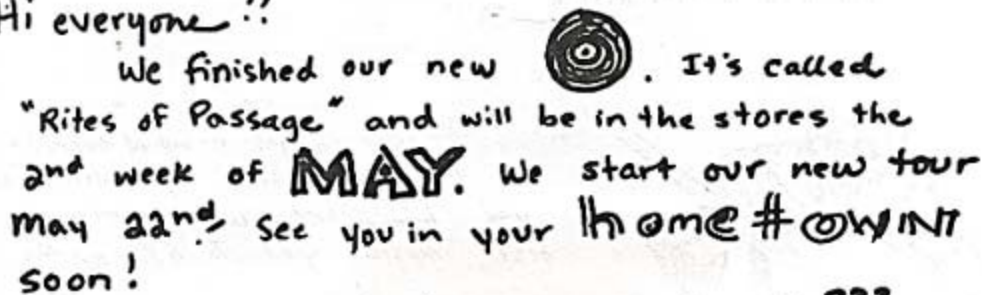 Hi everyone!!
We finished our new . It's called
"Rites of Passage" and will be in the stores the
2nd week of MAY. We start our new tour
May 22nd. See you in your hometown
soon!